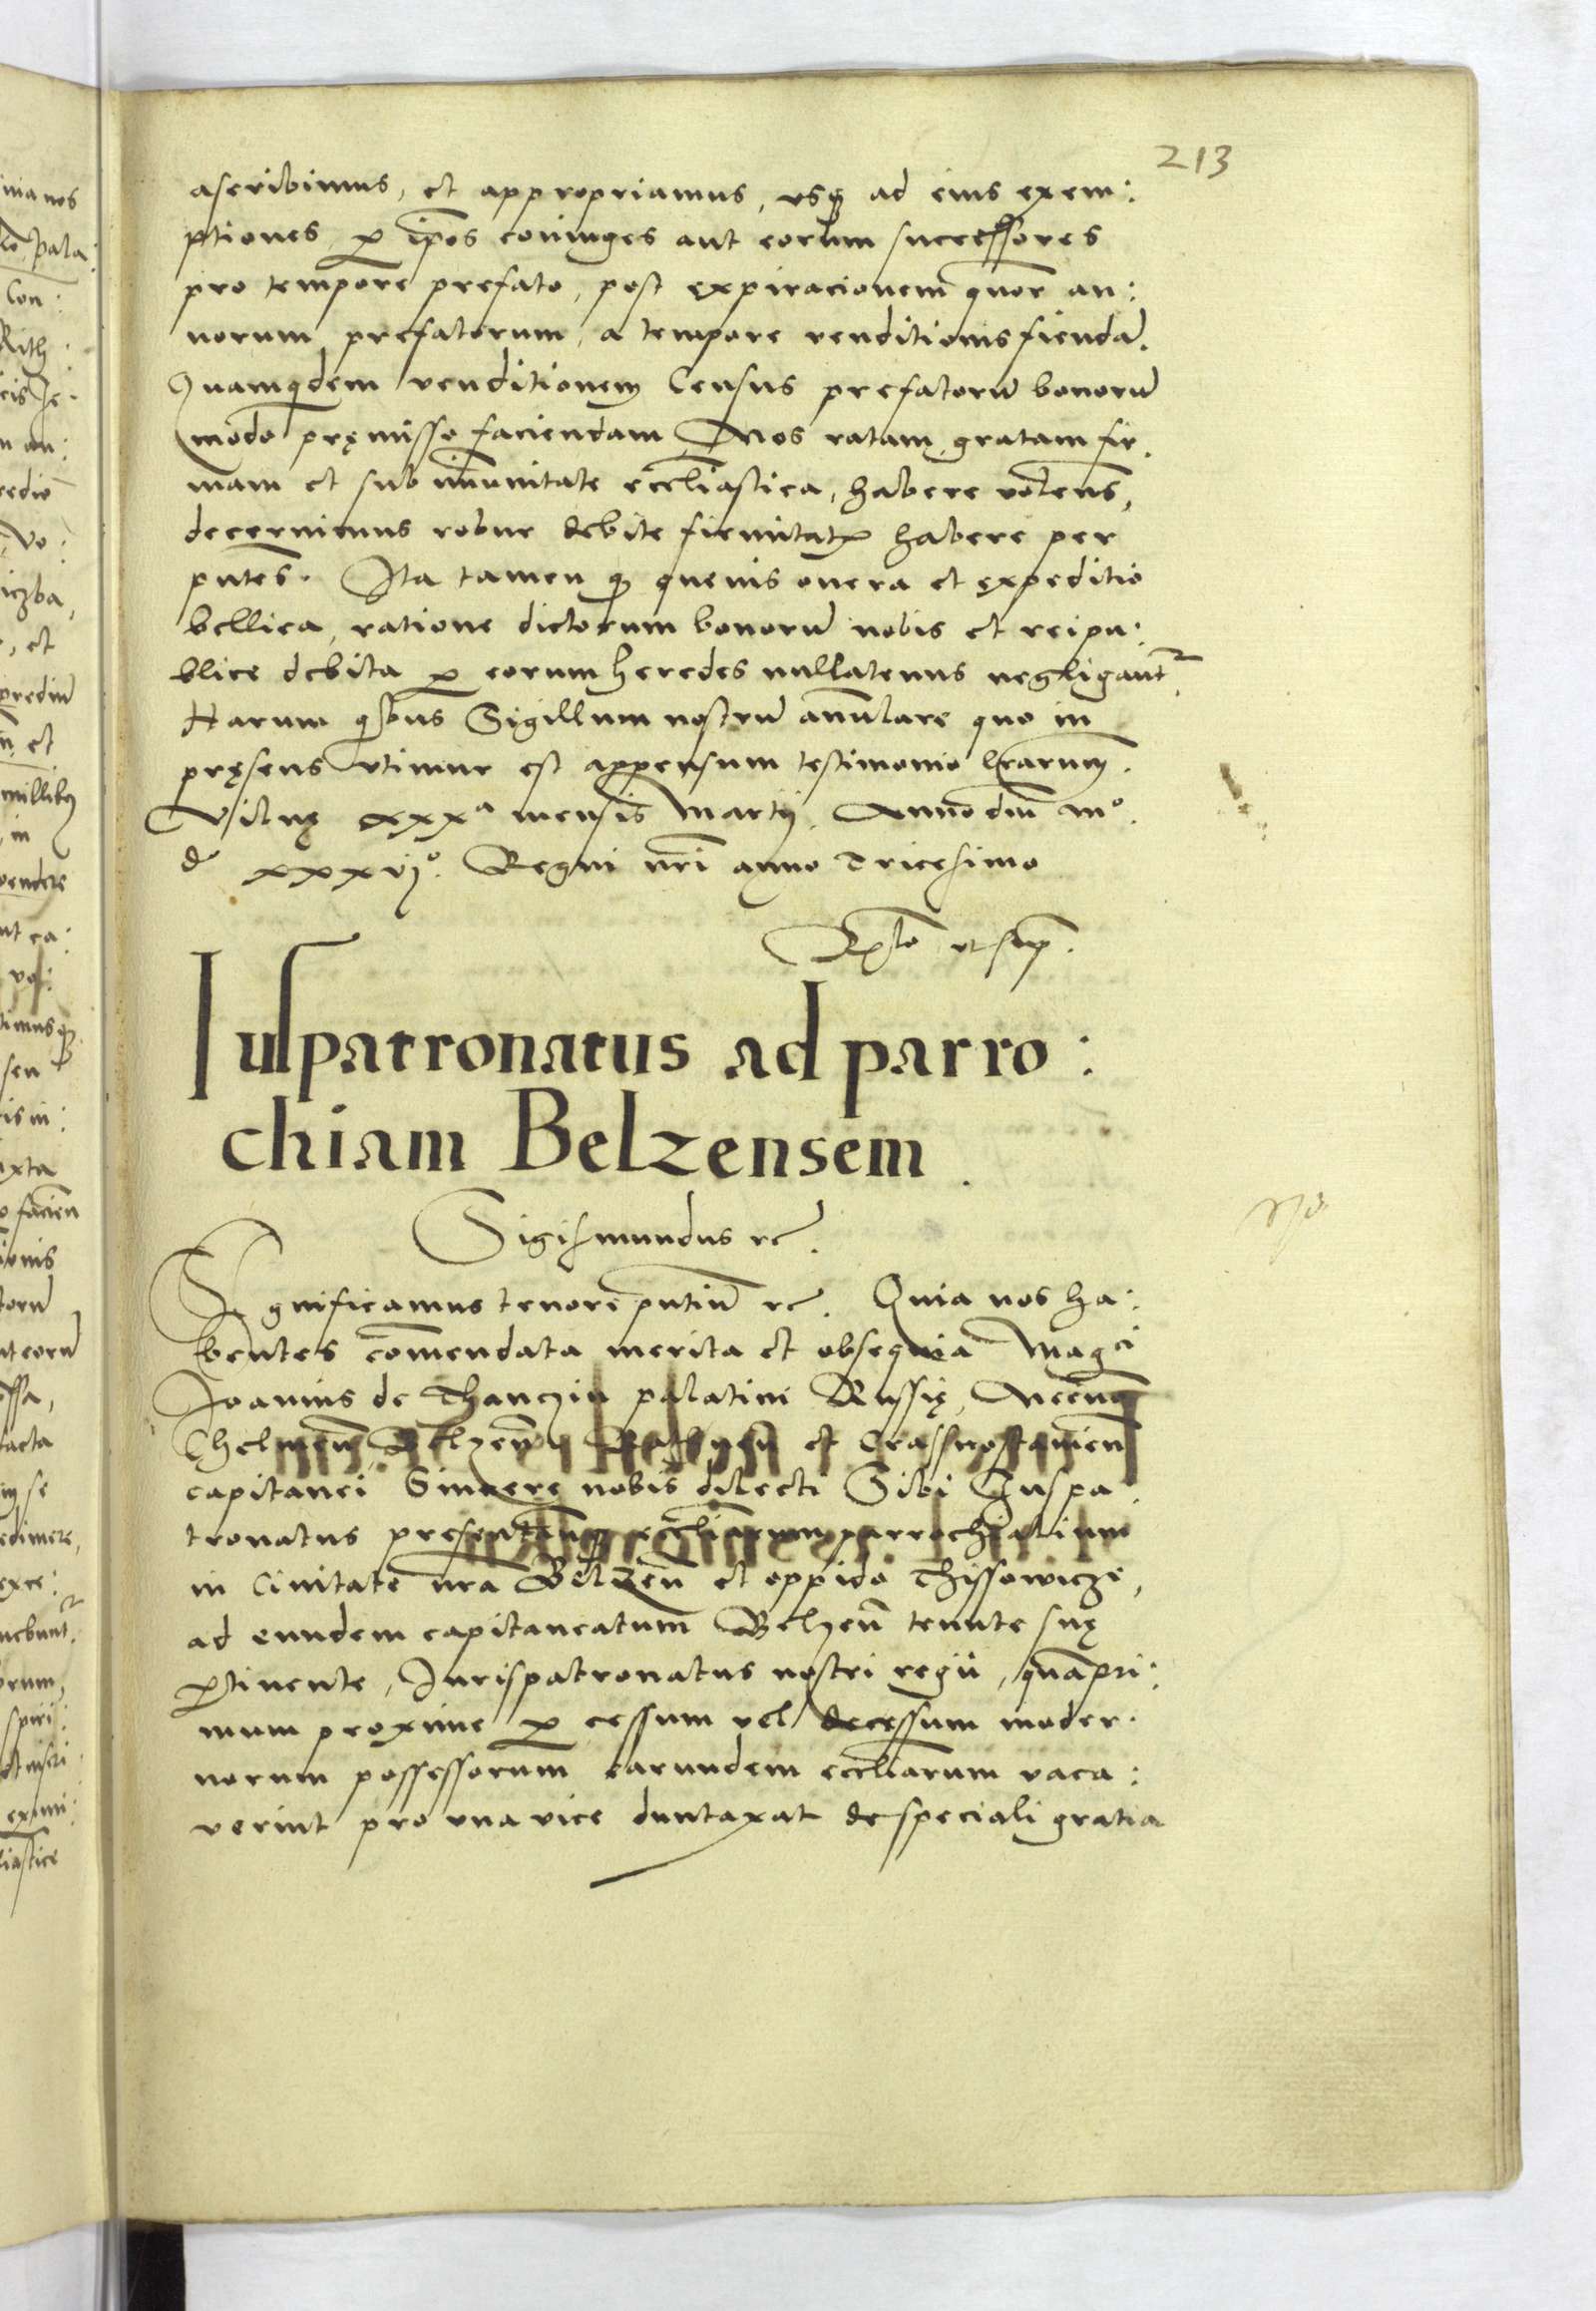 213
ascribimus, et appropriamus, usq3 ad eius exem:
ptiones, p ip̄os coniuges aut eorum successores
pro tempore prefato, post expiracionem quor an:
norum prefatorum, a tempore venditionis fiendā.
Quamqdem venditionem Census prefatorū bonorū
modo pręmisso faciendam, Nos ratam, gratam fir:
mam et sub im̄unitate eccl̄iastica, habere volens,
decernimus robur debite firmitatis habere per
pn̄tes. Ita tamen q3 quevis onera et expeditio
bellica, ratione dictorum bonorū nobis et reipu:
blice debita p eorum heredes nullatenus negligant̄.
Harum qibus Sigillum nostrū annulare quo in
pręsens utimur est appensum testimonio l̄rarum.
Vilnę xxxa mensis Martij. Anno dn̄i mo.
d xxxvjo. Regni nr̄i anno Tricesimo
ut sup.
Iuspatronatus ad parro:
chiam Belzensem.
Sigismundus rc.
Significamus tenore pn̄tium rc. Quia nos ha:
bentes com̄endata merita et obsequia Magci
Joannis de Thanczin palatini Russię, Necnon
Chelmen̄ Belzen̄ et Crassnostavien̄
capitanei Sincere nobis dilecti Sibi Juspa:
tronatus eccl̄iarum parrochialium
in Civitate nr̄a Belzen̄ et oppido Thissowicze,
ad eundem capitaneatum Belzen̄ tenute suę
ptinente, Jurispatronatus nostri regii, quāpri:
mum proxime p cessum vel decessum moder:
norum possessorum earundem eccl̄iarum vaca:
verint pro una vice duntaxat de speciali gratia